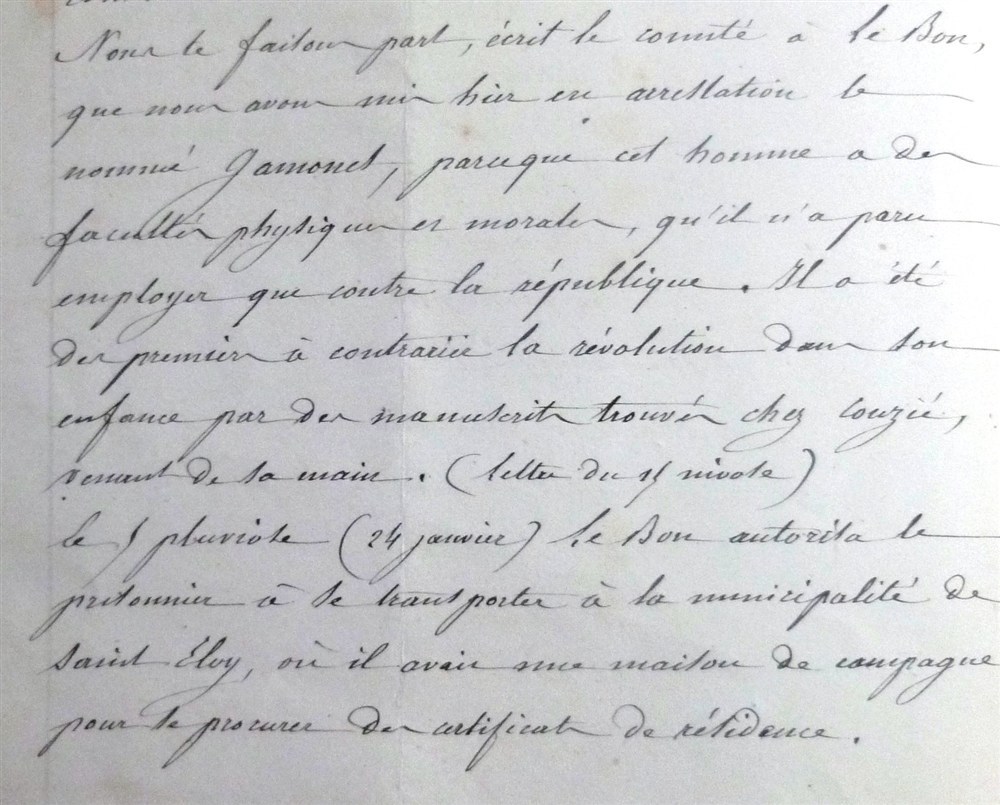 Nous te faisons part, écrit le comité à Le Bon,
que nous avons mis hier en arrestation le
nommé Gamonet, parceque cet homme a des
facultés physiques et morales, qu'il n'a paru
employer que contre la république. Il a été
des premiers à contrarier la révolution dans son
enfance par des manuscrits trouvés chez Couzié,
venant de sa main. (lettre du 15 nivose)
le 5 pluviose (24 janvier) Le Bon autorisa le
prisonnier à se transporter à la municipalité de
Saint Eloy, où il avait une maison de campagne
pour se procurer des certificats de résidence.